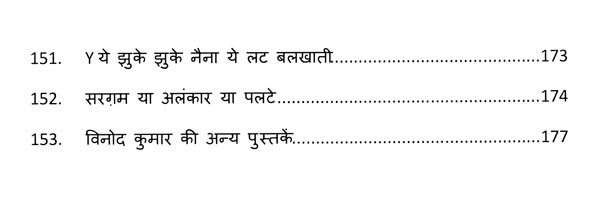 151. Y ये झुके झुके नैना ये लट बलखाती......................................173
152. सरग़म या अलंकार या पलटे................................................174
153. विनोद कुमार की अन्य पुस्तकें.............................................177